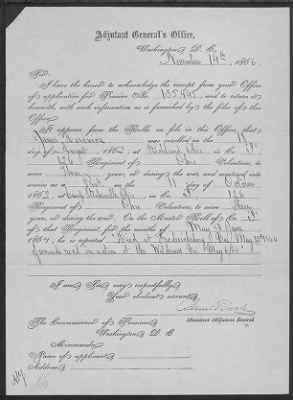 Adjutant General's Office,
Washington, D. C.
November 14th, 1866
Sir:
I have the honor to acknowledge the receipt from your Office
of application for Pension No. and to return it
herewith, with such information as is furnished by the files of this
Office.
It appears from the Rolls on file in this Office, that
James was enrolled on the
day of August, 1862, at Ohio, in Co.
126 Regiment of Ohio Volunteers, to
serve Three years, or during the war, and mustered into
service as a on the 11 day of October
1862, at Camp Ohio, in Co. 126
Regiment of Ohio Volunteers, to serve Three
years, or during the war. On the Muster Roll of Co.
of that Regiment, for the months of May & June
1864, he is reported "Died at Fredericksburg Va. May
of wounds recd in action at the Wilderness Va. May
I am, Sir, very respectfully,
Your obedient servant,
Assistant Adjutant General.
The Commissioner of Pensions,
Washington, D. C.
Memoranda:
Name of applicant
Address